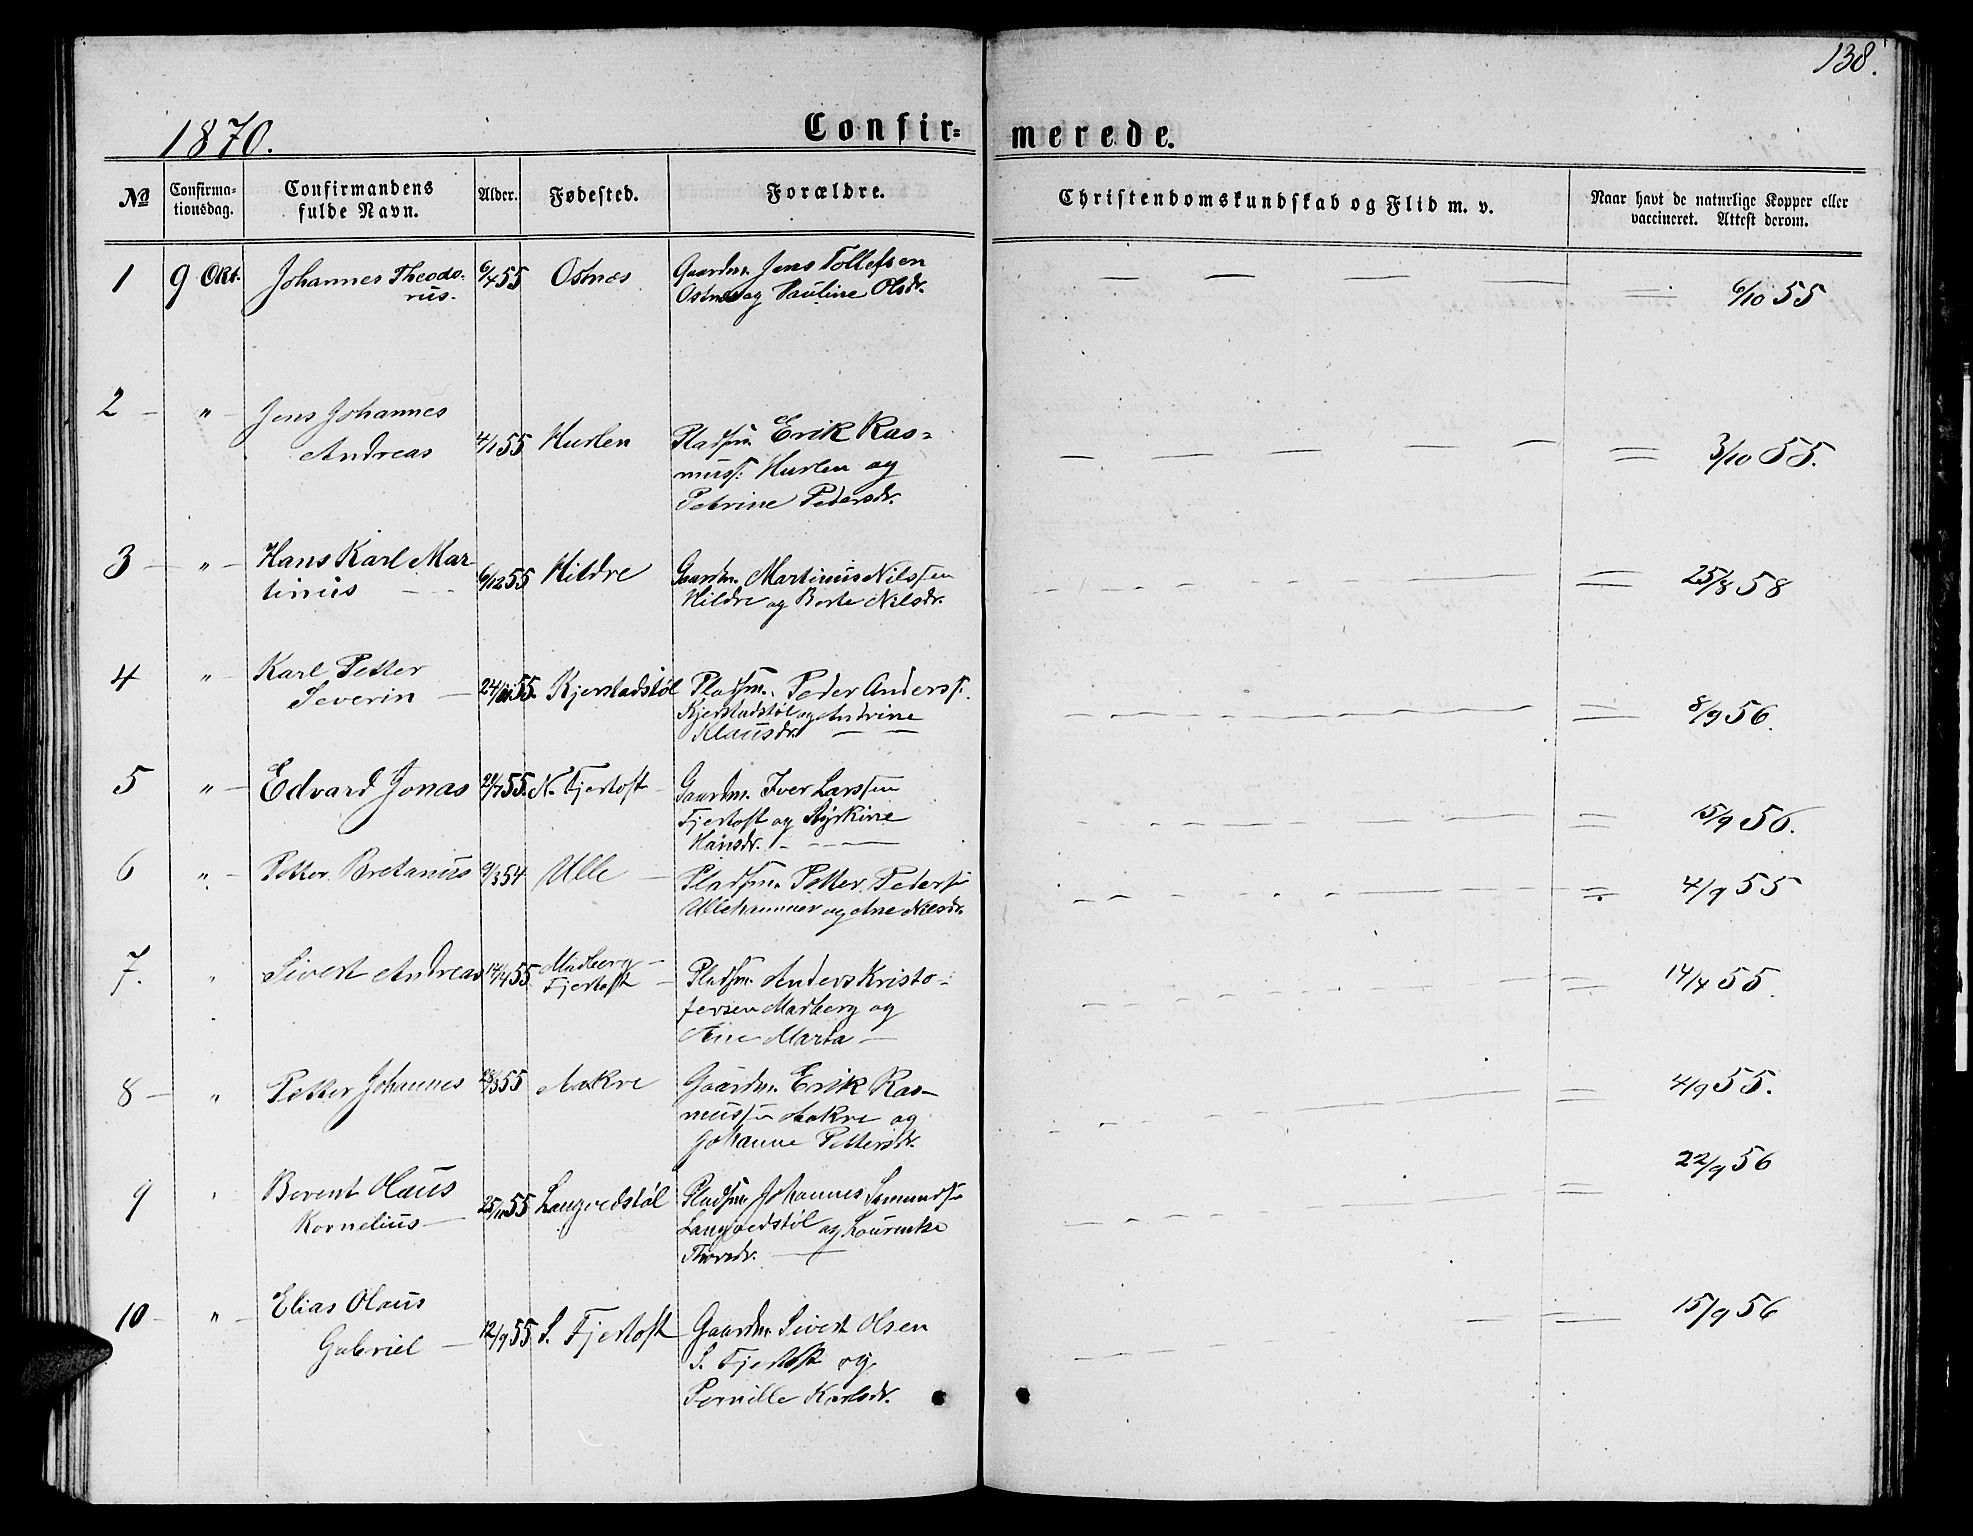 138.
1870.
Confir= merede.
No
Confirma-
tionsdag.
Confirmandens
fulde Navn.
Alder.
Fødested.
Forældre.
Christendomskundskab og Flid m. v.
Naar havt de naturlige Kopper eller
vaccineret. Attest derom.
1 9 Okt. Johannes Theodo-
rus. 6/4 55 Ostnes Gaardm. Jens Tollefsen
Ostnes og Pauline Olsdr. 6/10 55
2 " Jens Johannes
Andreas 4/1 55 Hurlen Pladsm. Erik Ras-
muss. Hurlen og
Petrine Pedersdr. 3/10 55.
3 " Hans Karl Mar-
tinius 6/12 55 Hildre Gaardm. Martinus Nilssen
Hildre og Berte Nilsdr. 25/8 58
4 " Karl Petter
Severin 55. Kjerstadstøl Pladsm. Peder Anderss.
Kjerstadstøl og Andrine
Klausdr. 8/9 56.
5 " Edvard Jonas 55. N. Fjertoft Gaardm. Iver Larssen
Fjertoft og Styrkine
Hansdr. 15/9 56.
6 " Petter Bretanus 9/3 54 Ulle Pladsm. Petter Peders-
Ullehammer og Ane Nilsdr. 4/9 55
7. " Sivert Andreas 14/4 55 Madberg
Fjertoft Pladsm. Anders Kristo-
fersen Madberg og
Ane Marta 14/4 55.
8 " Petter Johannes 55 Aakre Gaardm. Erik Ras-
mussen Aakre og
Johanne Pettersdr. 4/9 55.
9 " Berent Olaus
Kornelius 25/10 55 Langvedstøl Pladsm. Johannes Samunds-
Langvedstøl og Laurentse
Thorsdr. 22/9 56
10 " Elias Olaus
Gabriel 12/9 55 S. Fjertoft Gaardm. Sivert Olsen
S. Fjertoft og
Pernille Karlsdr. 15/9 56